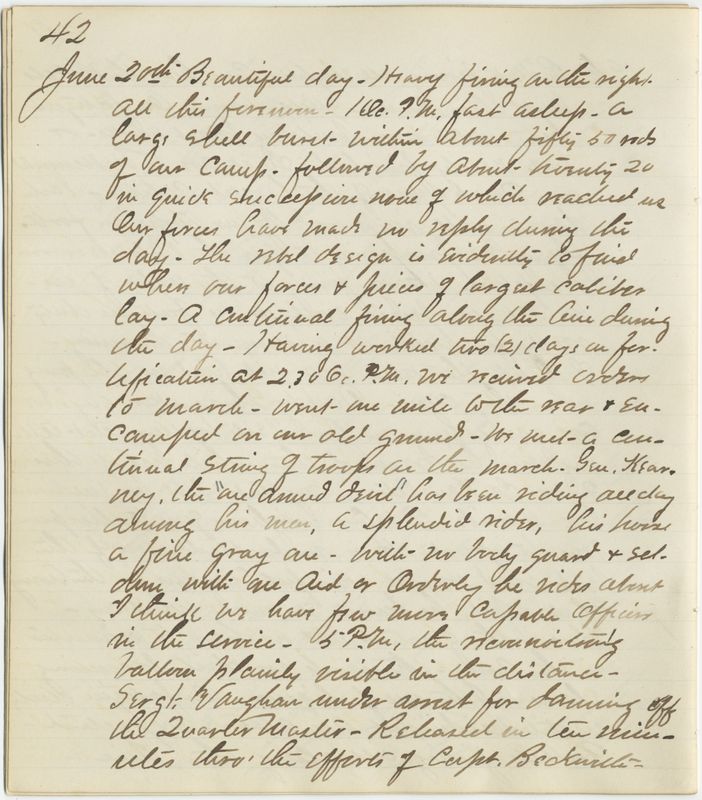 42
June 20th Beautiful day - Heavy firing on the right
all this forenoon - 1 Oc. P.M. fast asleep - a
large shell burst within about fifty 50 rods
of our Camp - followed by about twenty 20
in quick succession none of which reached us
Our forces have made no reply during the
day - The rebel design is evidently to find
where our forces & pieces of largest caliber
lay - A continual firing along the line during
the day - Having worked two (2) days on for-
tification at 2.30 Oc. P.M. we received orders
to march - went one mile to the rear & en-
camped on our old ground - We met a con-
tinual string of troops on the march - Gen. Kear-
ney, the "one armed devil" has been riding all day
among his men, a splendid rider, his horse
a fine gray one - with no body guard & sel-
dom with one Aid or Orderly he rides about
I think we have few more capable Officers
in the service - 5 P.M, the reconnoitring
balloon plainly visible in the distance -
Sergt. Vaughan under arrest for damning off
the Quarter Master - Released in ten min-
utes thro' the efforts of Capt. Beckwith -